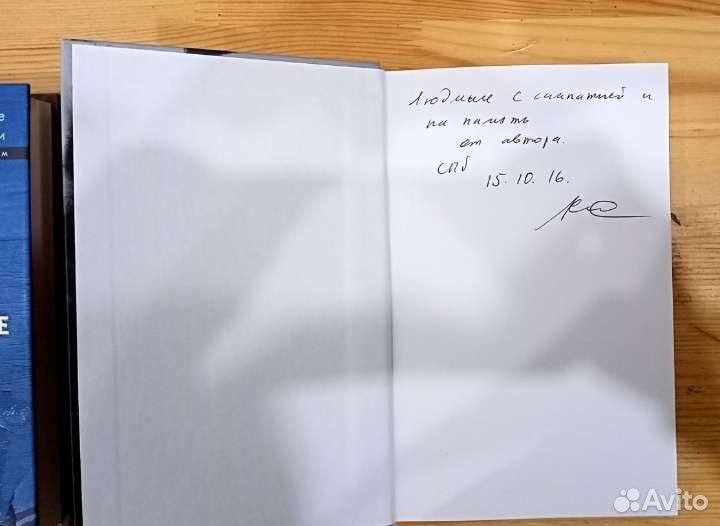 е
и
м
Е
Людмиле с симпатией и
на память
от автора.
СПб
15.10.16.
Avito